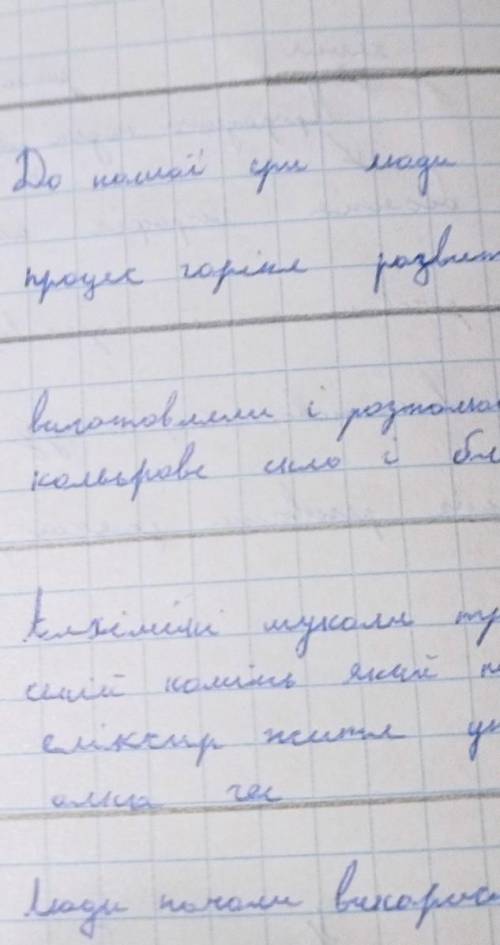 До нашої ери люди
процес горіня розвит
виготовляли і розмалю
кольорове скло і бл
Алхіміки шукали
який
еліксир життя
Люди почали викорис